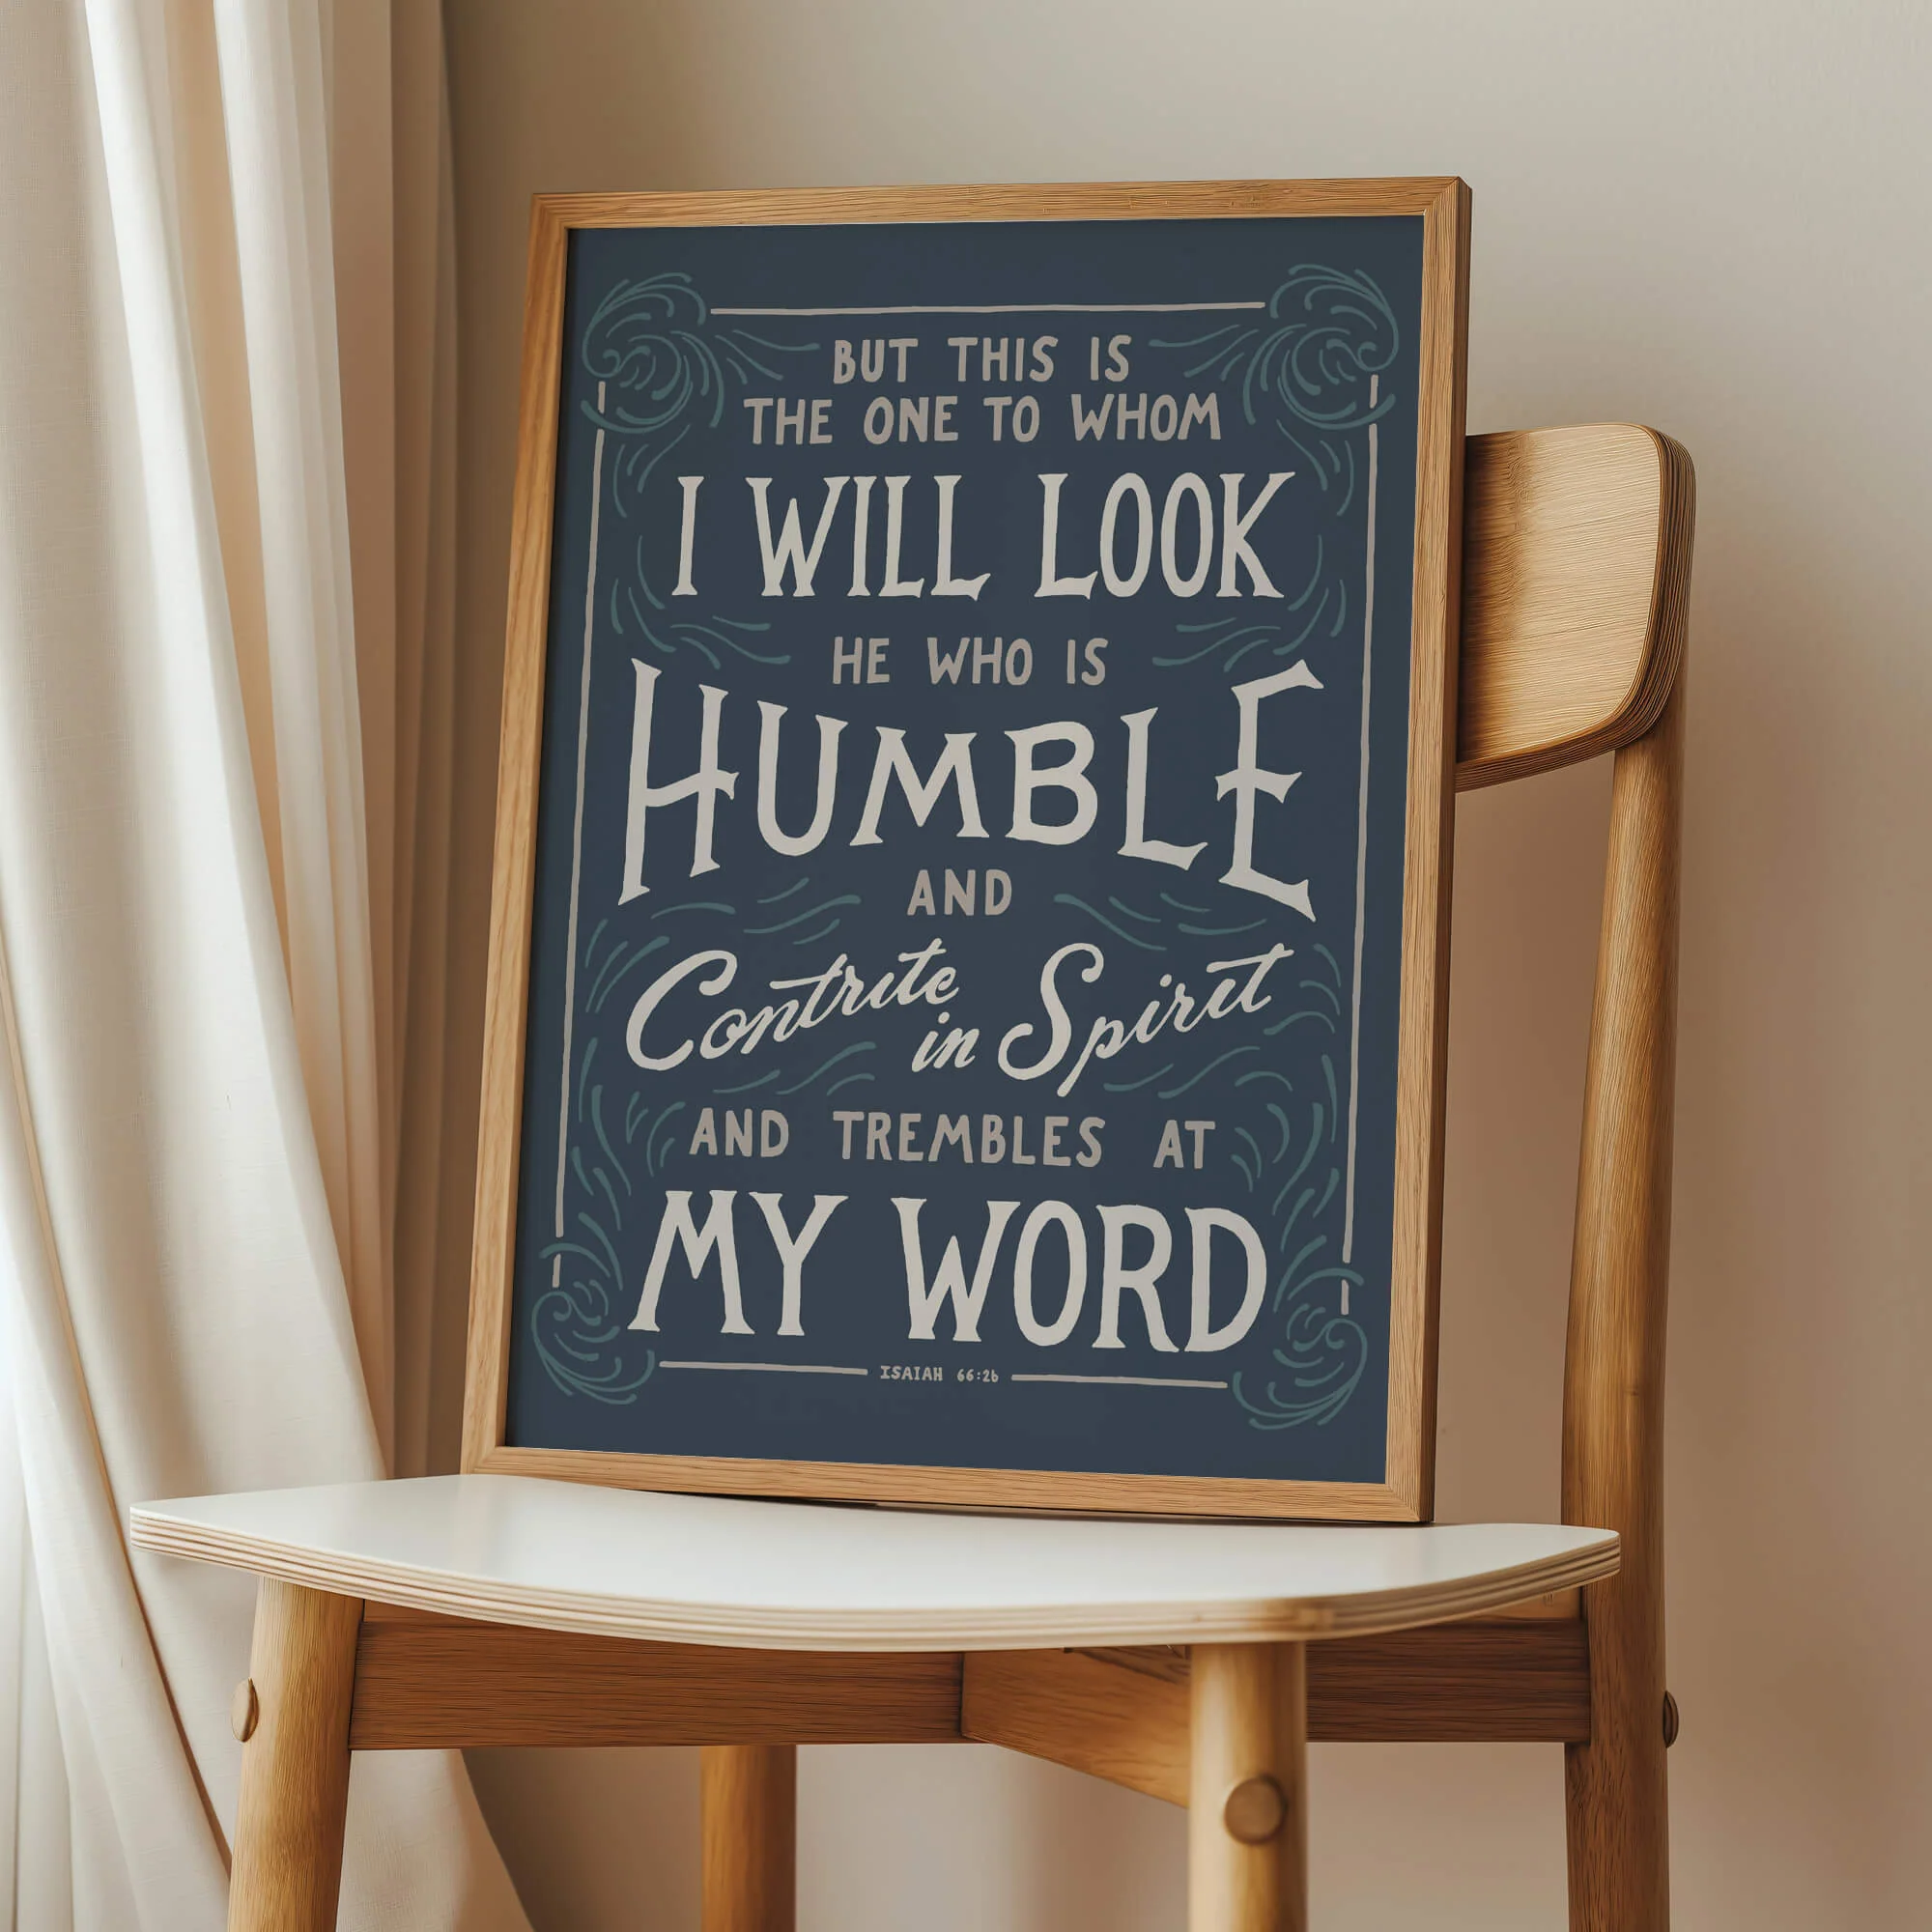 BUT THIS IS
THE ONE TO WHOM
I WILL LOOK
HE WHO IS
HUMBLE
AND
Contrite in Spirit
AND TREMBLES AT
MY WORD
ISAIAH 66:2b